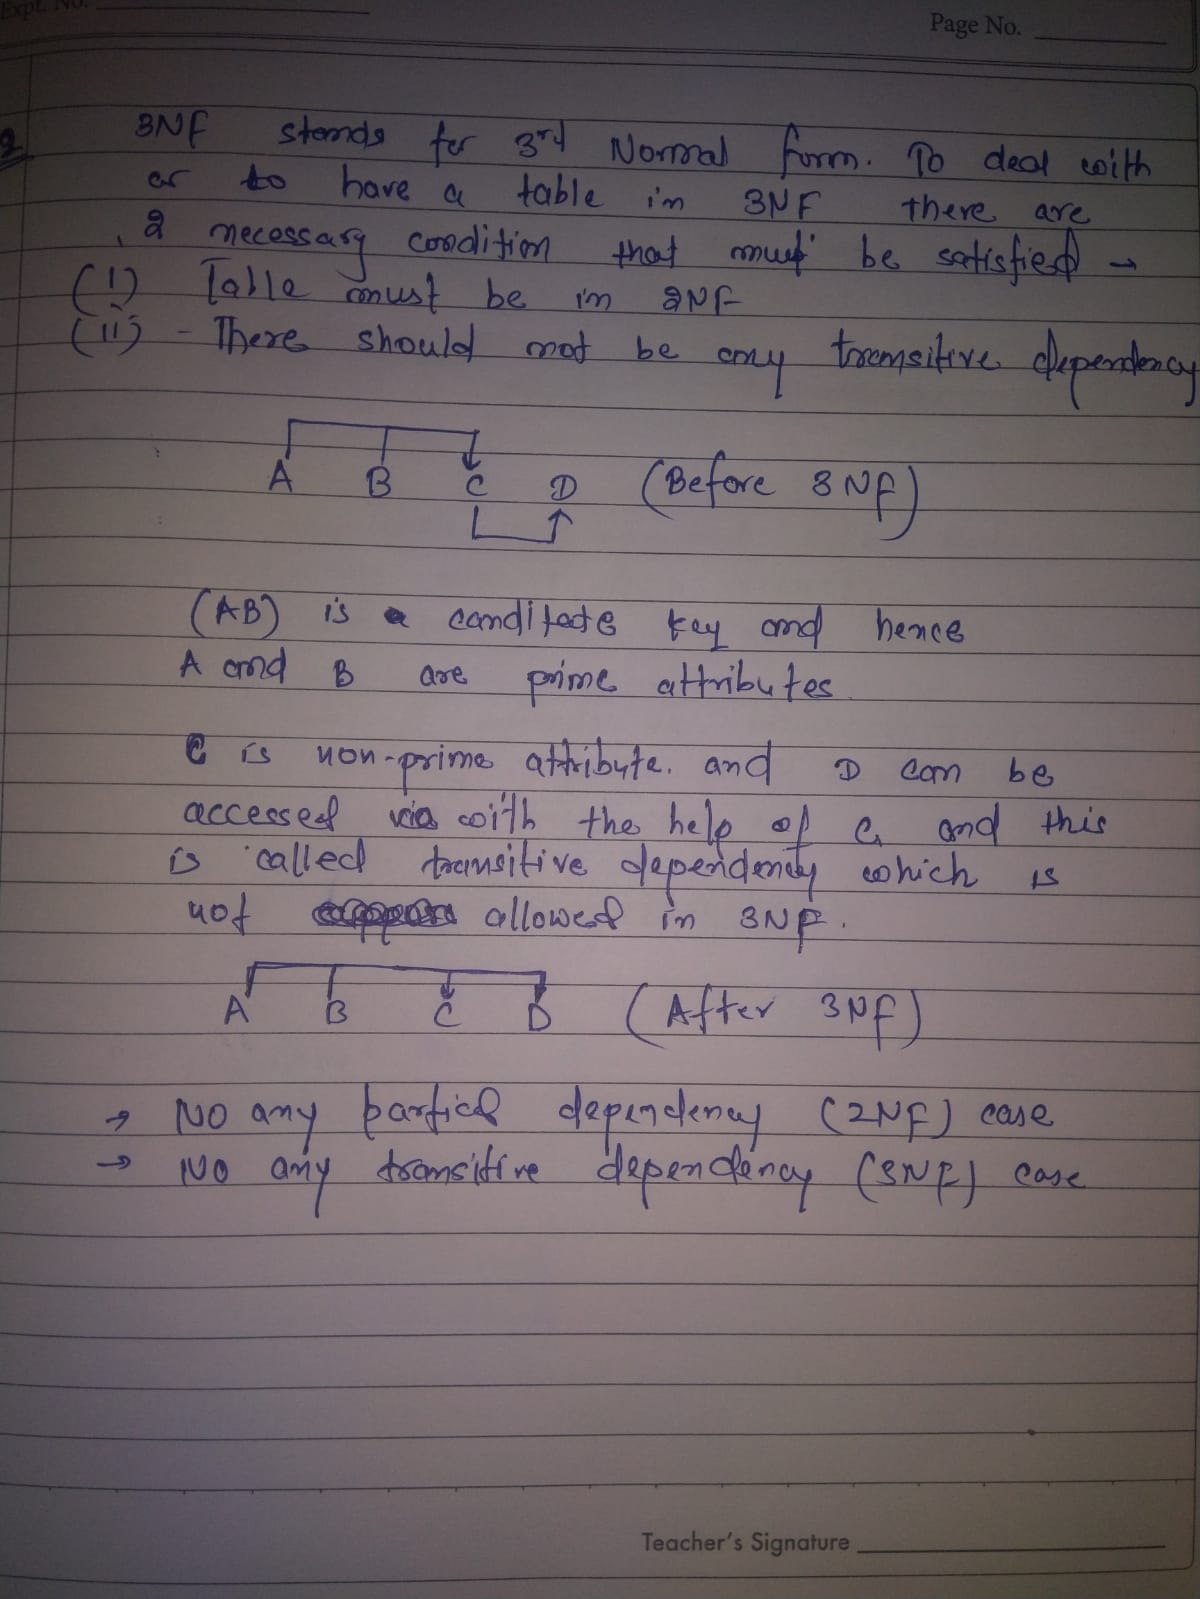 Expt. No.
Page No.
2
3NF stands for 3rd Normal form. To deal with
or to have a table in 3NF there are
2 necessary condition that must be satisfied →
(i) Table must be in 2NF
(ii) - There should not be any transitive dependency
A B C D (Before 3NF)
(AB) is a canditate key and hence
A and B are prime attributes.
C is non-prime attribute. and D can be
accessed via with the help of C, and this
is called transitive dependency which is
not allowed in 3NF.
A B C D (After 3NF)
→ No any partial dependency (2NF) case
→ No any transitive dependency (3NF) case
Teacher's Signature